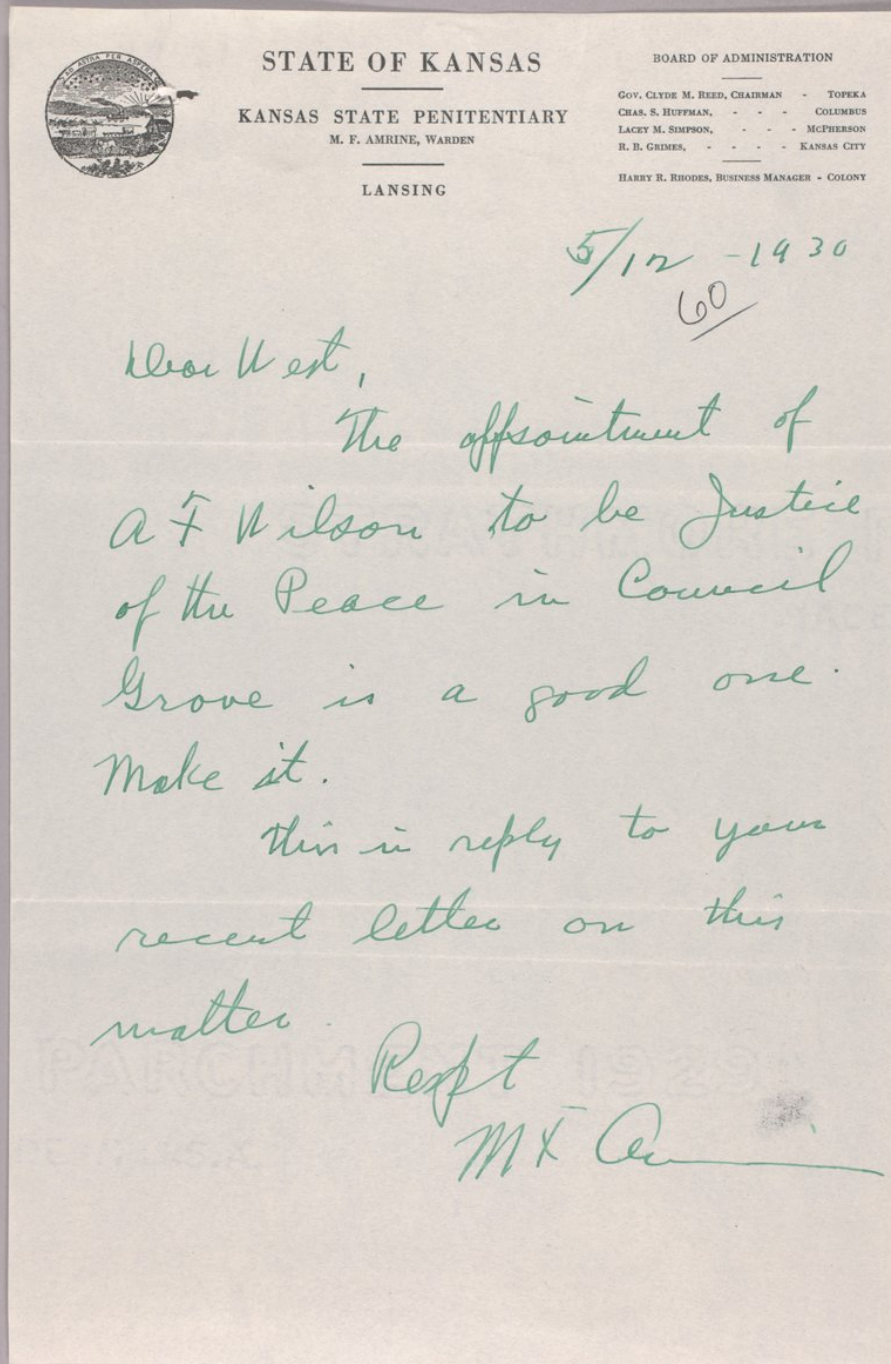 AD ASTRA PER ASPERA
STATE OF KANSAS
KANSAS STATE PENITENTIARY
M. F. AMRINE, WARDEN
LANSING
BOARD OF ADMINISTRATION
GOV. CLYDE M. REED, CHAIRMAN - TOPEKA
CHAS. S. HUFFMAN, - - - COLUMBUS
LACEY M. SIMPSON, - - - MCPHERSON
R. B. GRIMES, - - - - KANSAS CITY
HARRY R. RHODES, BUSINESS MANAGER - COLONY
5/12 - 1930
60
Dear West,
The appointment of
A F Wilson to be Justice
of the Peace in Council
Grove is a good one.
Make it.
This in reply to your
recent letter on this
matter.
Respt
M F Am